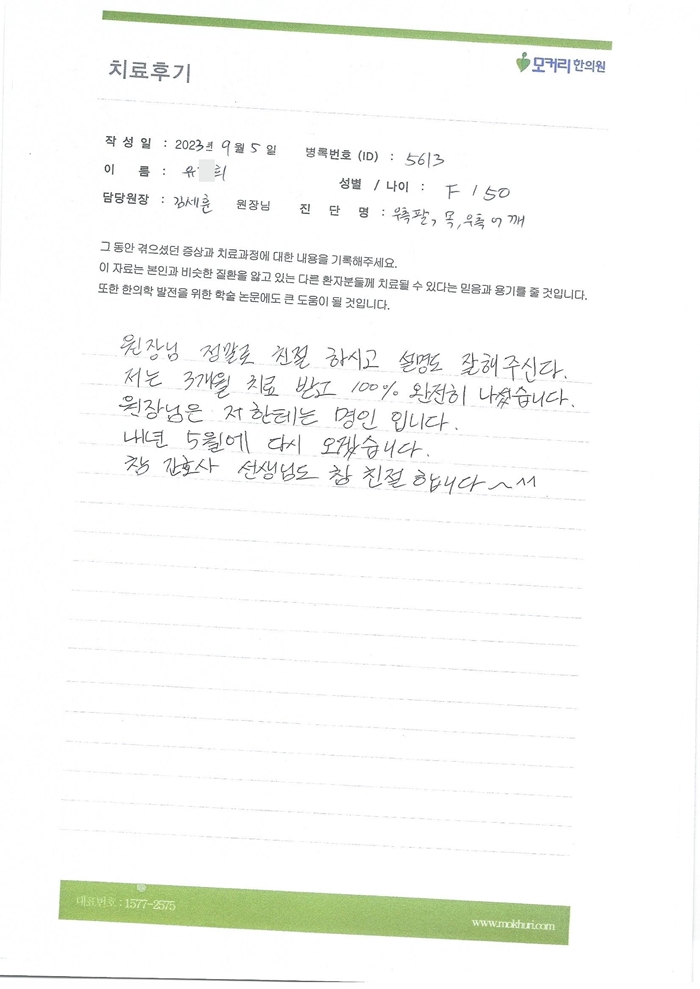 치료후기
모커리한의원
작 성 일 : 2023년 9월 5일 병록번호 (ID) : 5613
이 름 : 유 희 성별 / 나이 : F / 50
담당원장 : 김세훈 원장님 진 단 명 : 우측팔, 목, 우측어깨
그 동안 겪으셨던 증상과 치료과정에 대한 내용을 기록해주세요.
이 자료는 본인과 비슷한 질환을 앓고 있는 다른 환자분들께 치료될 수 있다는 믿음과 용기를 줄 것입니다.
또한 한의학 발전을 위한 학술 논문에도 큰 도움이 될 것입니다.
원장님 정말로 친절 하시고 설명도 잘해주신다.
저는 3개월 치료 받고 100% 완전히 나았습니다.
원장님은 저한테는 명인 입니다.
내년 5월에 다시 오겠습니다.
참 간호사 선생님도 참 친절합니다~^^
대표번호 : 1577-2575
www.mokhuri.com